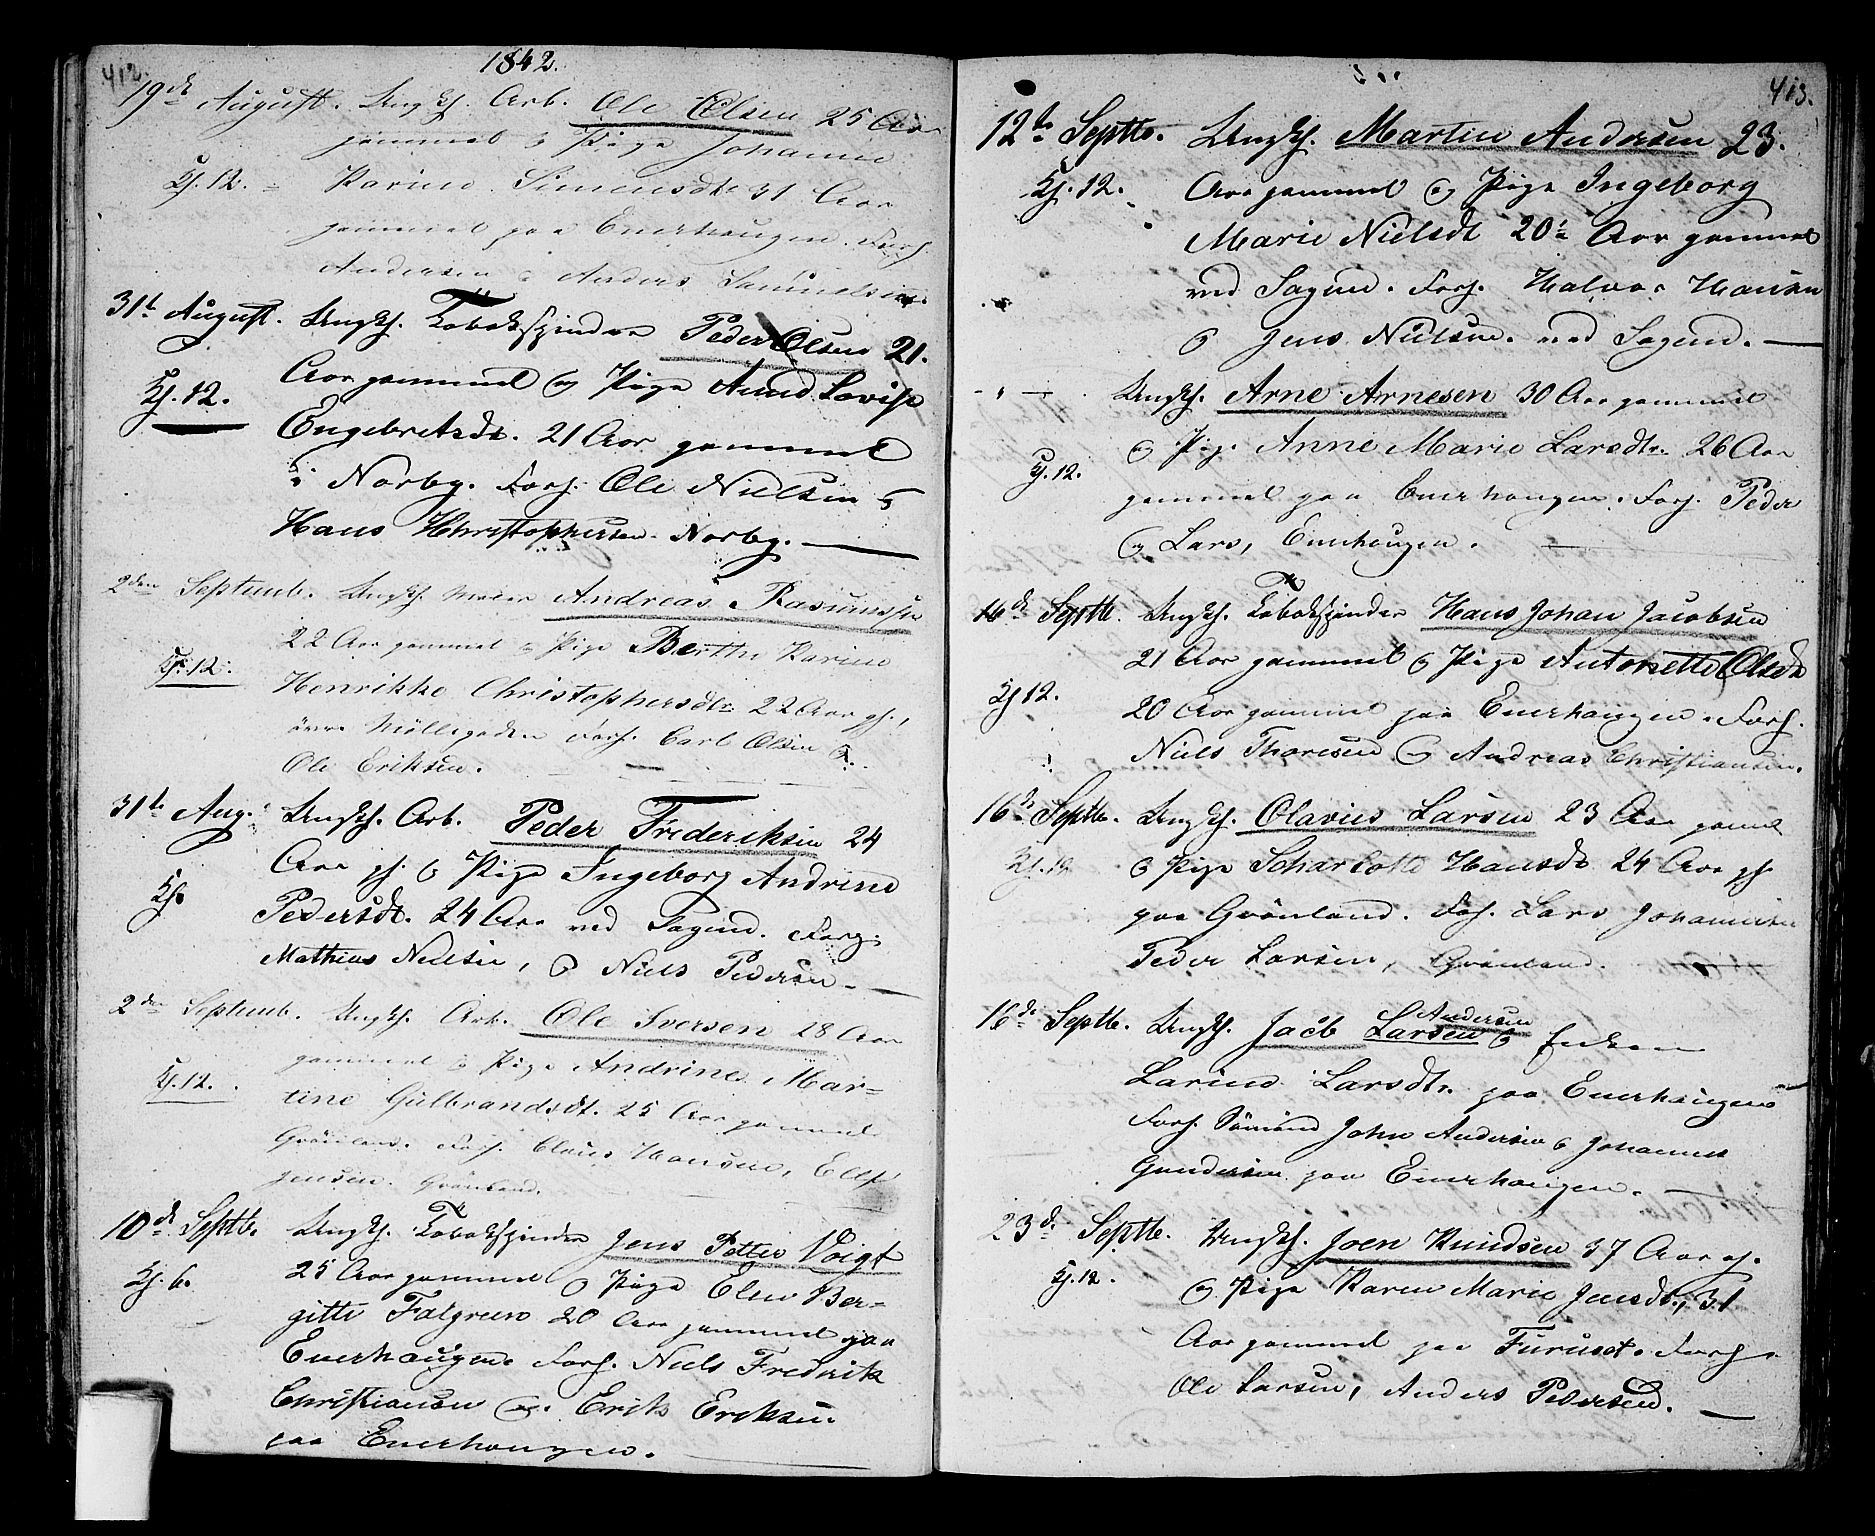 412.
1842.
19de August. Ungk. Arb. Ole Olsen 25 Aar
gammel og Pige Johanne
Kj. 12. Karine Simensdt. 31 Aar
gammel paa Enerhaugen. Forl.
Andersen og Anders Samuelsen
31t August. Ungk. Tobaksspinder Peder Olsen 21.
Aar gammel og Pige Anne Lovise
Kj. 12.
Engebretsdt. 21 Aar gammel
i Norby. Forl. Ole Nielsen &
Hans Christophersen Norby.
2den Septemb. Ungk. Maler Andreas Rasmussen
22 Aar gammel og Pige Berthe Karine
Kj. 12.
Henrikke Christophersdtr 22 Aar gl.,
övre Möllegaden Forl. Carl Olsen &
Ole Eriksen.
31t Aug. Ungk. Arb. Peder Frederiksen 24
Aar gl. og Pige Ingeborg Andrine
Kj.
Pedersdt. 24 Aar ved Sagene. Forl.
Mathias Nielsen, og Niels Pedersen
2den Septemb. Ungk. Arb. Ole Iversen 28 Aar
gammel og Pige Andrine Mar-
Kj. 12.
tine Gulbrandsdt. 25 Aar gammel
Grönland. Forl. Claus Hansen, Ellef
Jensen. Grönland.
10de Septb. Ungk. Tobaksspinder Jens Petter Voigt
25 Aar gammel og Pige Elen Ber-
Kj. 6.
gitte Falgreen 20 Aar gammel paa
Enerhaugen Forl. Niels Fredrik
Christiansen og Erik Eriksen.
paa Enerhaugen.
413.
12te Septb. Ungk. Martin Andersen 23.
Kj. 12. Aar gammel og Pige Ingeborg
Marie Nielsdt 20 Aar gammel
ved Sagene. Forl. Halvor Hansen
og Jens Nielsen. ved Sagene.
- " - Ungk. Arne Arnesen 30 Aar gammel
og Pige Anne Marie Larsdtr. 26 Aar
Kj. 12.
gammel paa Enerhaugen. Forl. Peder
og Lars, Enerhaugen.
16de Septb. Ungk. Tobaksspinder Hans Johan Jacobsen
21 Aar gammel og Pige Antonette Olsdt
Kj 12.
20 Aar gammel paa Enerhaugen. Forl.
Niels Thoresen og Andreas Christiansen.
16de Septb. Ungk. Olavius Larsen 23 Aar gamel
Kj. 12 og Pige Scharlotte Hansdt 24 Aar gl.
paa Grönland. Forl. Lars Johannesen
Peder Larsen, Grönland.
Andersen
16de Septb. Ungk. Jacb Larsen og Enken
Larine Larsdtr. paa Enerhaugen
Forl. John Andersen og Johannes
Gundersen paa Enerhaugen.
23de Septb. Ungk. Joen Knudsen 37 Aar gl.
Kj. 12. og Pige Karen Marie Jensdt., 31
Aar gammel paa Furuset. Forl.
Ole Larsen, Anders Pedersen.